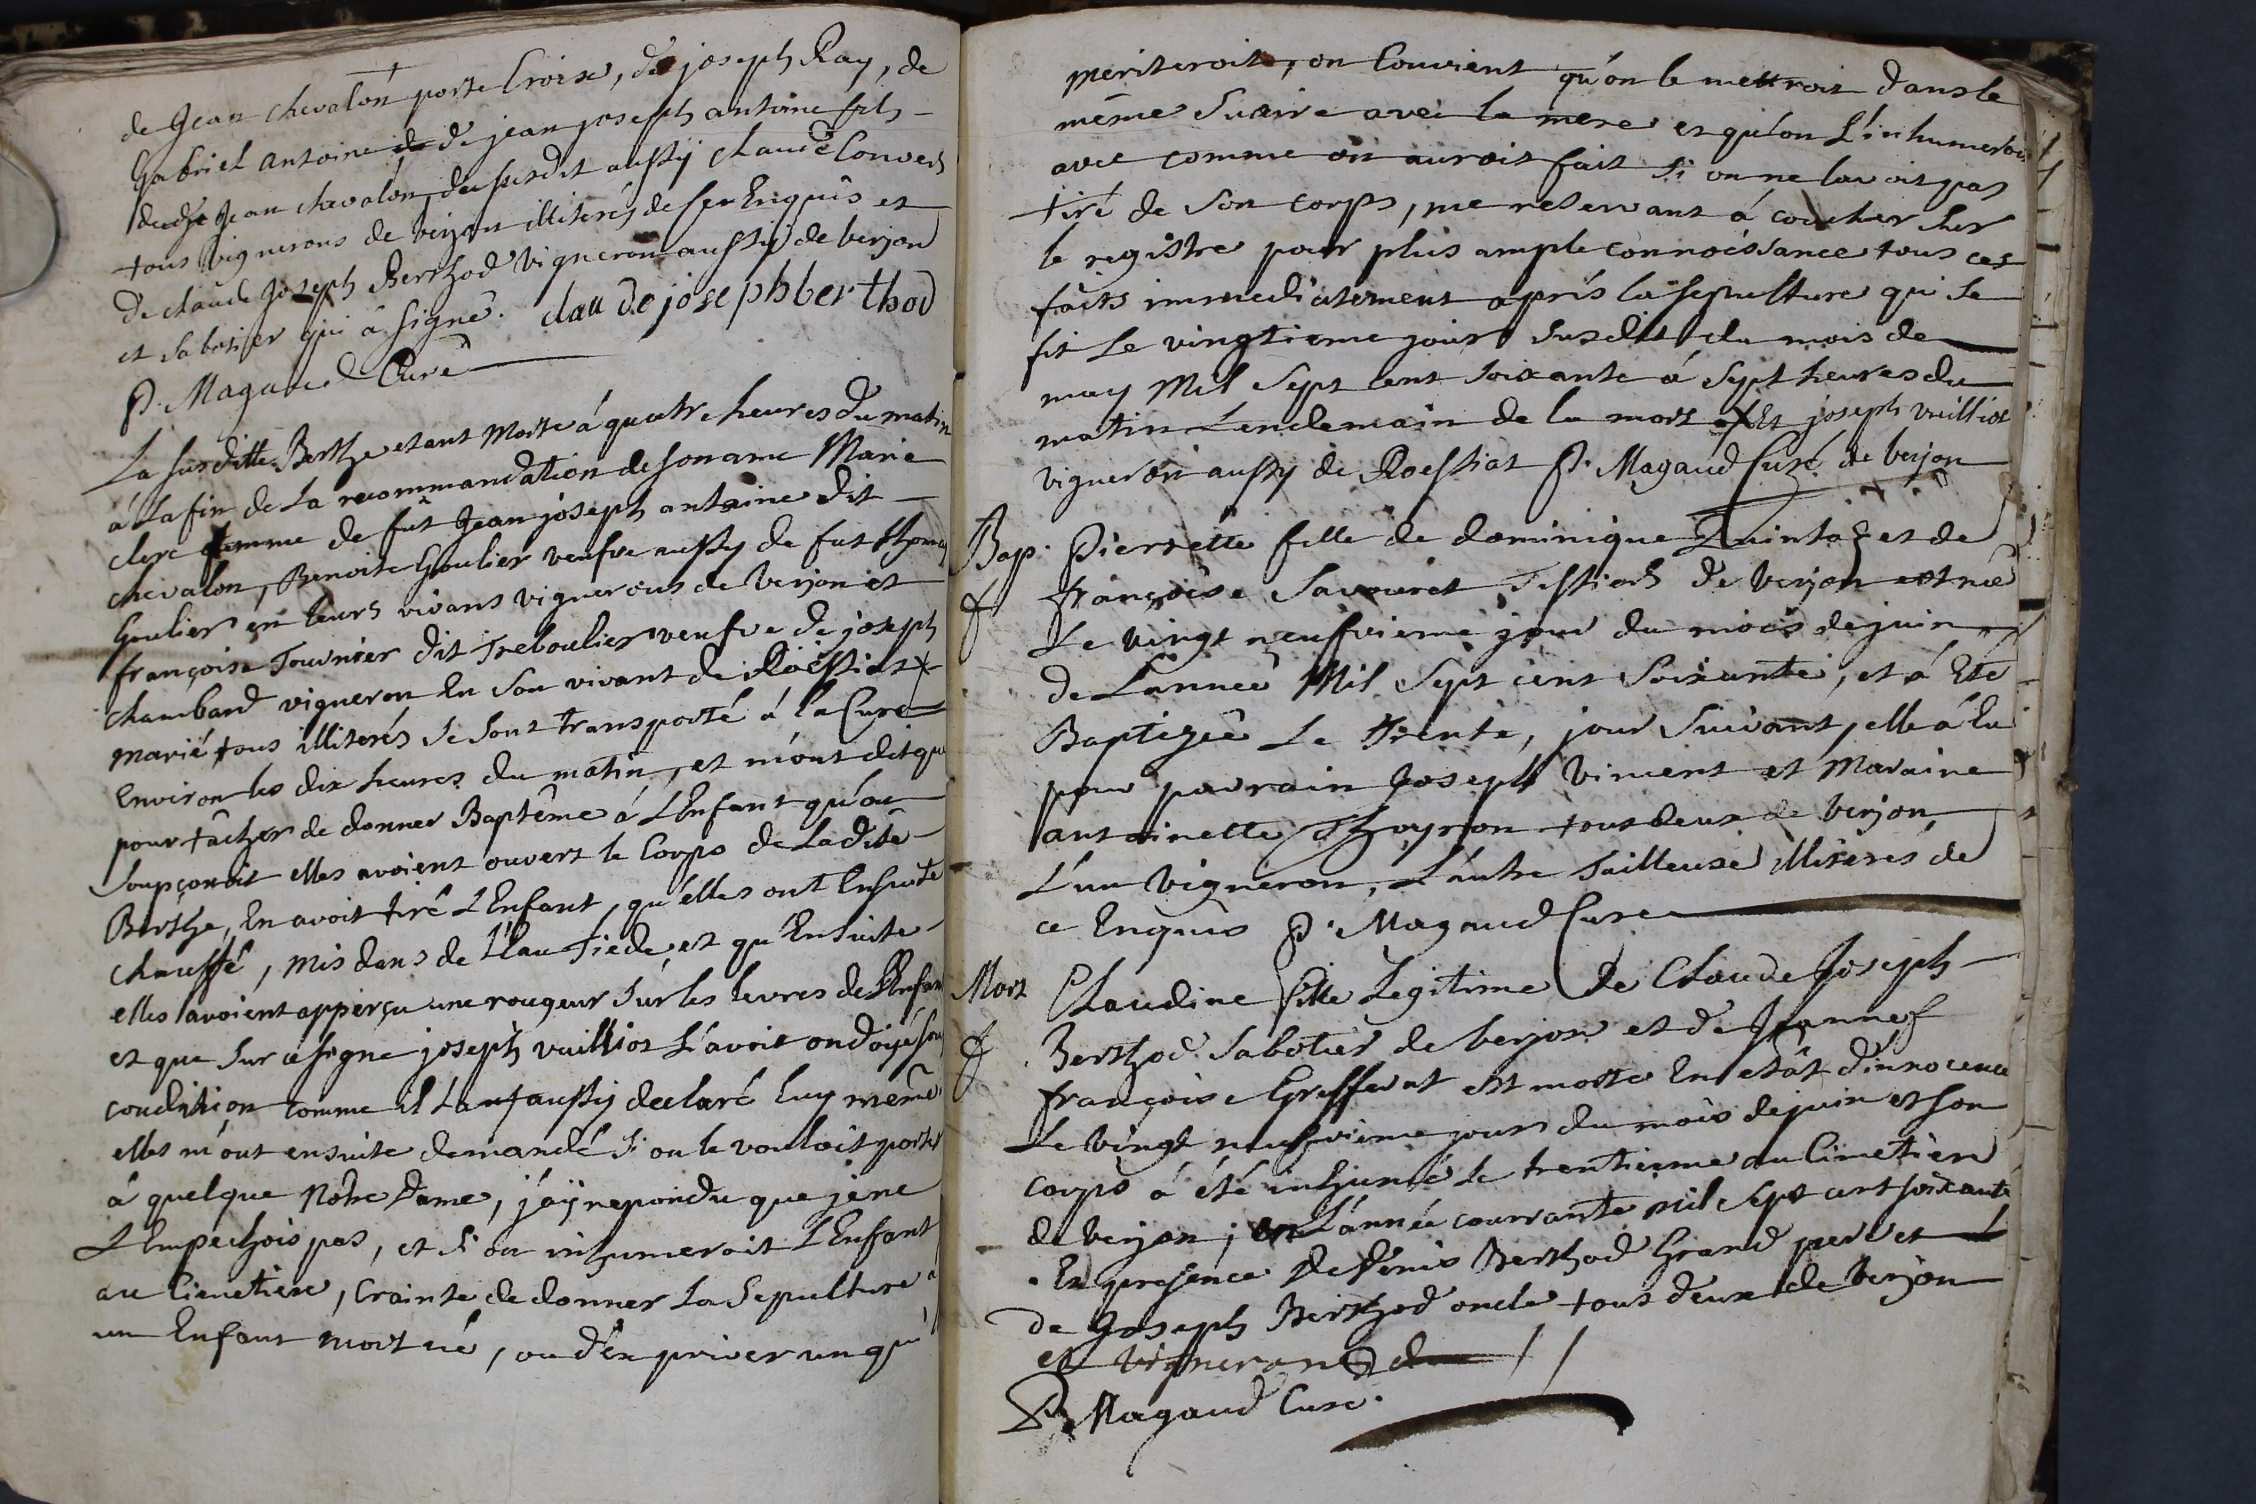 de Jean chevalon porte Croix, de joseph Ray, de
Gabriel antoine de jean joseph antoine fils
dudt Jean chevalon, du susdit aussy claude Convers
tous vignerons de verjon illiterés de ce Enquis et
de claude Joseph Berthod vigneron aussy de verjon
et sabotier qui a signé. claude joseph berthod
P. Magaud Curé
La susditte Berthe etant morte á quatre heures du matin
á la fin de la recommandation de son ame Marie
clerc femme de fut Jean joseph antoine dit
chevalon, Benoite Goulier veufve aussy de fut thomas
Goulier en leurs vivans vignerons de verjon et
françoise Tournier dit Treboulier veufve de joseph
chambard vigneron En son vivant de Roissiat
marié tous illiterés se sont transporté á la Cure
Environ les dix heures du matin, et m'ont dit que
pour tâcher de donner Baptême á L'Enfant qu'on
soupçonoit elles avoient ouvert le Corps de Ladite
Berthe, En avoit tiré L'Enfant, qu'elles ont Ensuite
chauffé, mis dans de L'Eau tiede, et qu'Ensuite
elles avoient apperçu une rougeur sur les levres de L'Enfant
et que sur ce signe joseph vuilliot L'avoit ondoyé sous
condition comme il L'a aussy declaré luy même
elles m'ont ensuite demandé si on le vouloit porter
á quelque Notre Dame, j'aÿ repondu que je ne
L'Empechois pas, et si on inhumeroit L'Enfant
au Cimetiere, Crainte de donner La Sepulture á
un Enfant mort né, ou d'en priver un qui
meriteroit, on Convient qu'on le mettroit dans le
même Suaire avec la mere et qu'on L'inhumeroit
avec comme on auroit fait si on ne lavoit pas
tiré de son corps, me reservant á coucher sur
le registre pour plus ample connoissance tous ces
faits immediatement aprés la sepulture qui se
fit Le vingtieme jour susdit du mois de
may Mil Sept cent soixante á Sept heures du
matin Lendemain de la mort Et joseph vuilliot
vigneron aussy de Roissiat P. Magaud Curé de verjon
Bap. Pierrette fille de dominique Quintaz et de
f françoise Savouret Tessiers de verjon est née
Le vingt neufvieme jour du mois de juin
de L'année Mil Sept cent Soixante, et á Eté
Baptizée Le trente, jour Suivant, elle á Eu
pour parrain Joseph Vincent et Maraine
antoinette Thoyron tous deux de verjon
L'un Vigneron, L'autre Tailleuse illiterés de
ce Enquis P. Magaud Cure
Mort Claudine fille Legitime de Claude Joseph
f Berthod Sabotier de verjon et de Jeanne
françoise Greffet est morte En etat d'innocence
Le vingt neufvieme jour du mois de juin et son
corps á été inhumé le trentieme au Cimetiere
de verjon, L'année courrante mil Sept cent soixante
En presence de Denis Berthod Grand pere et
de Joseph Berthod oncle tous deux de Verjon
et vignerons
P. Magaud Cure.